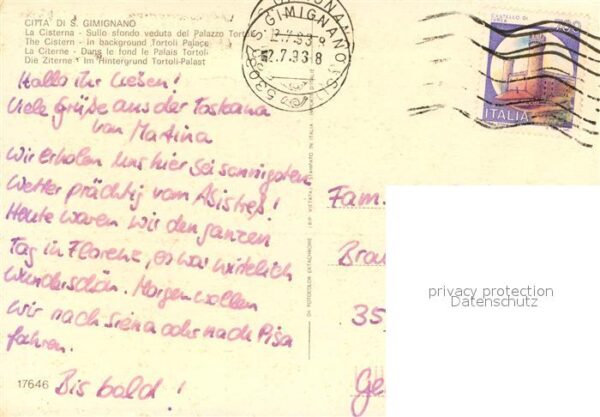 CITTÀ DI S. GIMIGNANO
La Cisterna - Sullo sfondo veduta del Palazzo Tortoli
The Cistern - in background Tortoli Palace
La Citerne - Dans le fond le Palais Tortoli
Die Ziterne - Im Hintergrund Tortoli-Palast
Hallo ihr Lieben!
Viele Grüße aus der Toskana
von Martina
Wir erholen uns hier bei sonnigstem
Wetter prächtig vom Abistreß!
Heute waren wir den ganzen
Tag in Florenz, es war wirklich
wunderschön. Morgen wollen
wir nach Siena oder nach Pisa
fahren.
Bis bald!
17646
53037 S. GIMIGNANO (SI)
2.7.93 8
ITALIA
Fam.
Brau
35
Ge
privacy protection
Datenschutz